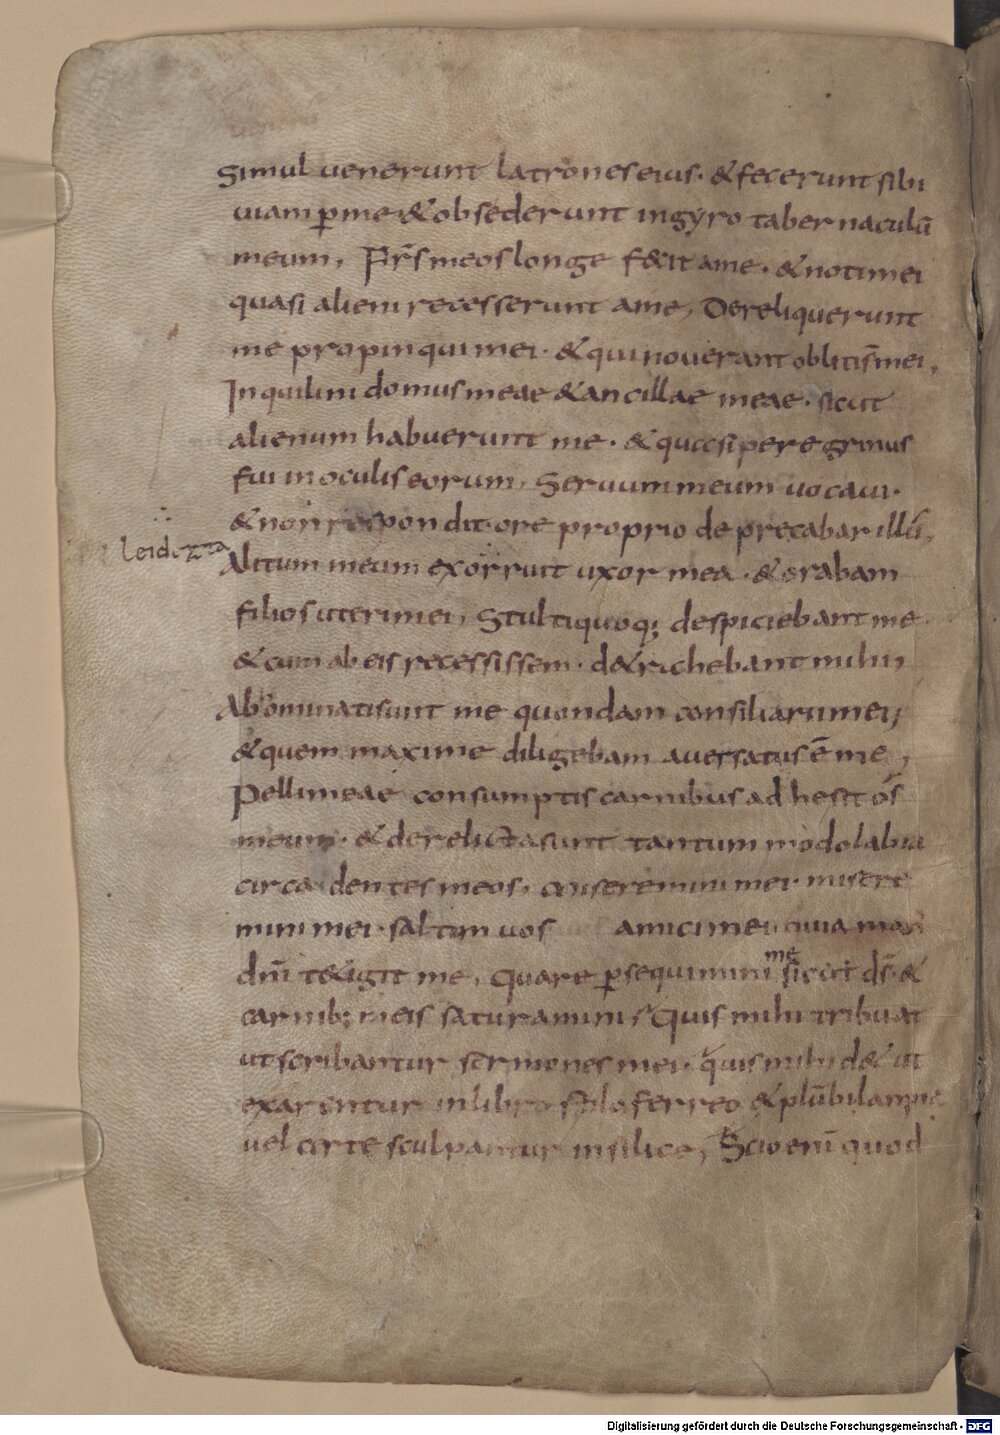 Simul uenerunt latrones eius. & fecerunt sibi
uiam p̱ me & obsederunt in gyro tabernaculū
meum, Fr̄s meos longe f&it a me. & noti mei
quasi alieni recesserunt a me, Dereliquerunt
me propinqui mei. & qui nouerant obliti s̄ mei,
Inquilini domus meae & ancillae meae. sicut
alienum habuerunt me. & quasi peregrinus
fui in oculis eorum, Seruum meum uocaui.
& non respondit. ore proprio deprecabar illū,
leidezta
Alitum meum exorruit uxor mea. & orabam
filios uteri mei, Stulti quoq; despiciebant me
& cum ab eis recessissem. d&richebant mihi,
Abominati sunt me quondam consiliarii mei,
& quem maxime diligebam auersatus ē me,
Pelli meae consumptis carnibus adhesit ós
meum. & derelicta sunt tantummodo labia
circa dentes meos, miseremini mei. misere
mini mei. saltim uos amici mei quia man
dn̄i t&igit me, Quare p̱sequimini me sicut ds̄. &
carnib; meis saturamini, Quis mihi tribuat
ut scribantur sermones mei. quis mihi d& ut
exarentur in libro stilo ferreo & plūbi lam
uel certe sculpantur in silice, Scio enī quod
Digitalisierung gefördert durch die Deutsche Forschungsgemeinschaft - DFG